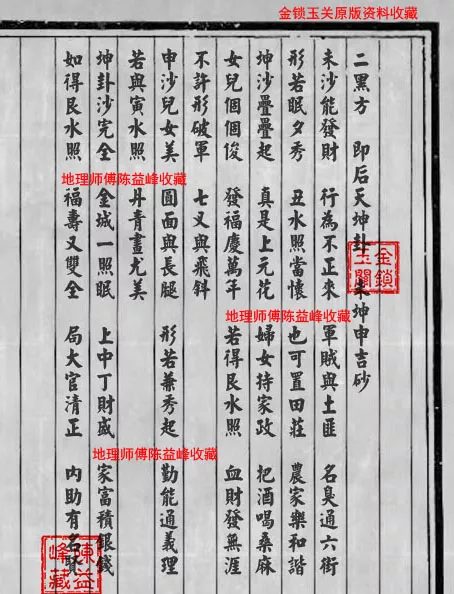 金锁玉关原版资料收藏
二黑方 即后天坤卦 未坤申吉砂
未沙能發財 行為不正來 軍賊與土匪 名臭通六街
形若眠夕秀 丑水照當懷 也可置田莊 農家樂和諧
坤沙疊疊起 真是上元花 婦女持家政 把酒喝桑麻
女兒個個俊 發福慶萬年 若得艮水照 血財發無涯
不許形破軍 七叉與飛斜
申沙兒女美 圓面與長腿 形若兼秀起 勤能通義理
若與寅水照 丹青畫尤美
坤卦沙完全 金城一照眠 上中丁財盛 家富積銀錢
如得艮水照 福壽又雙全 局大官清正 內助有名
金鎖玉關
地理师傅陈益峰收藏
地理师傅陈益峰收藏
地理师傅陈益峰收藏
陳益峰藏